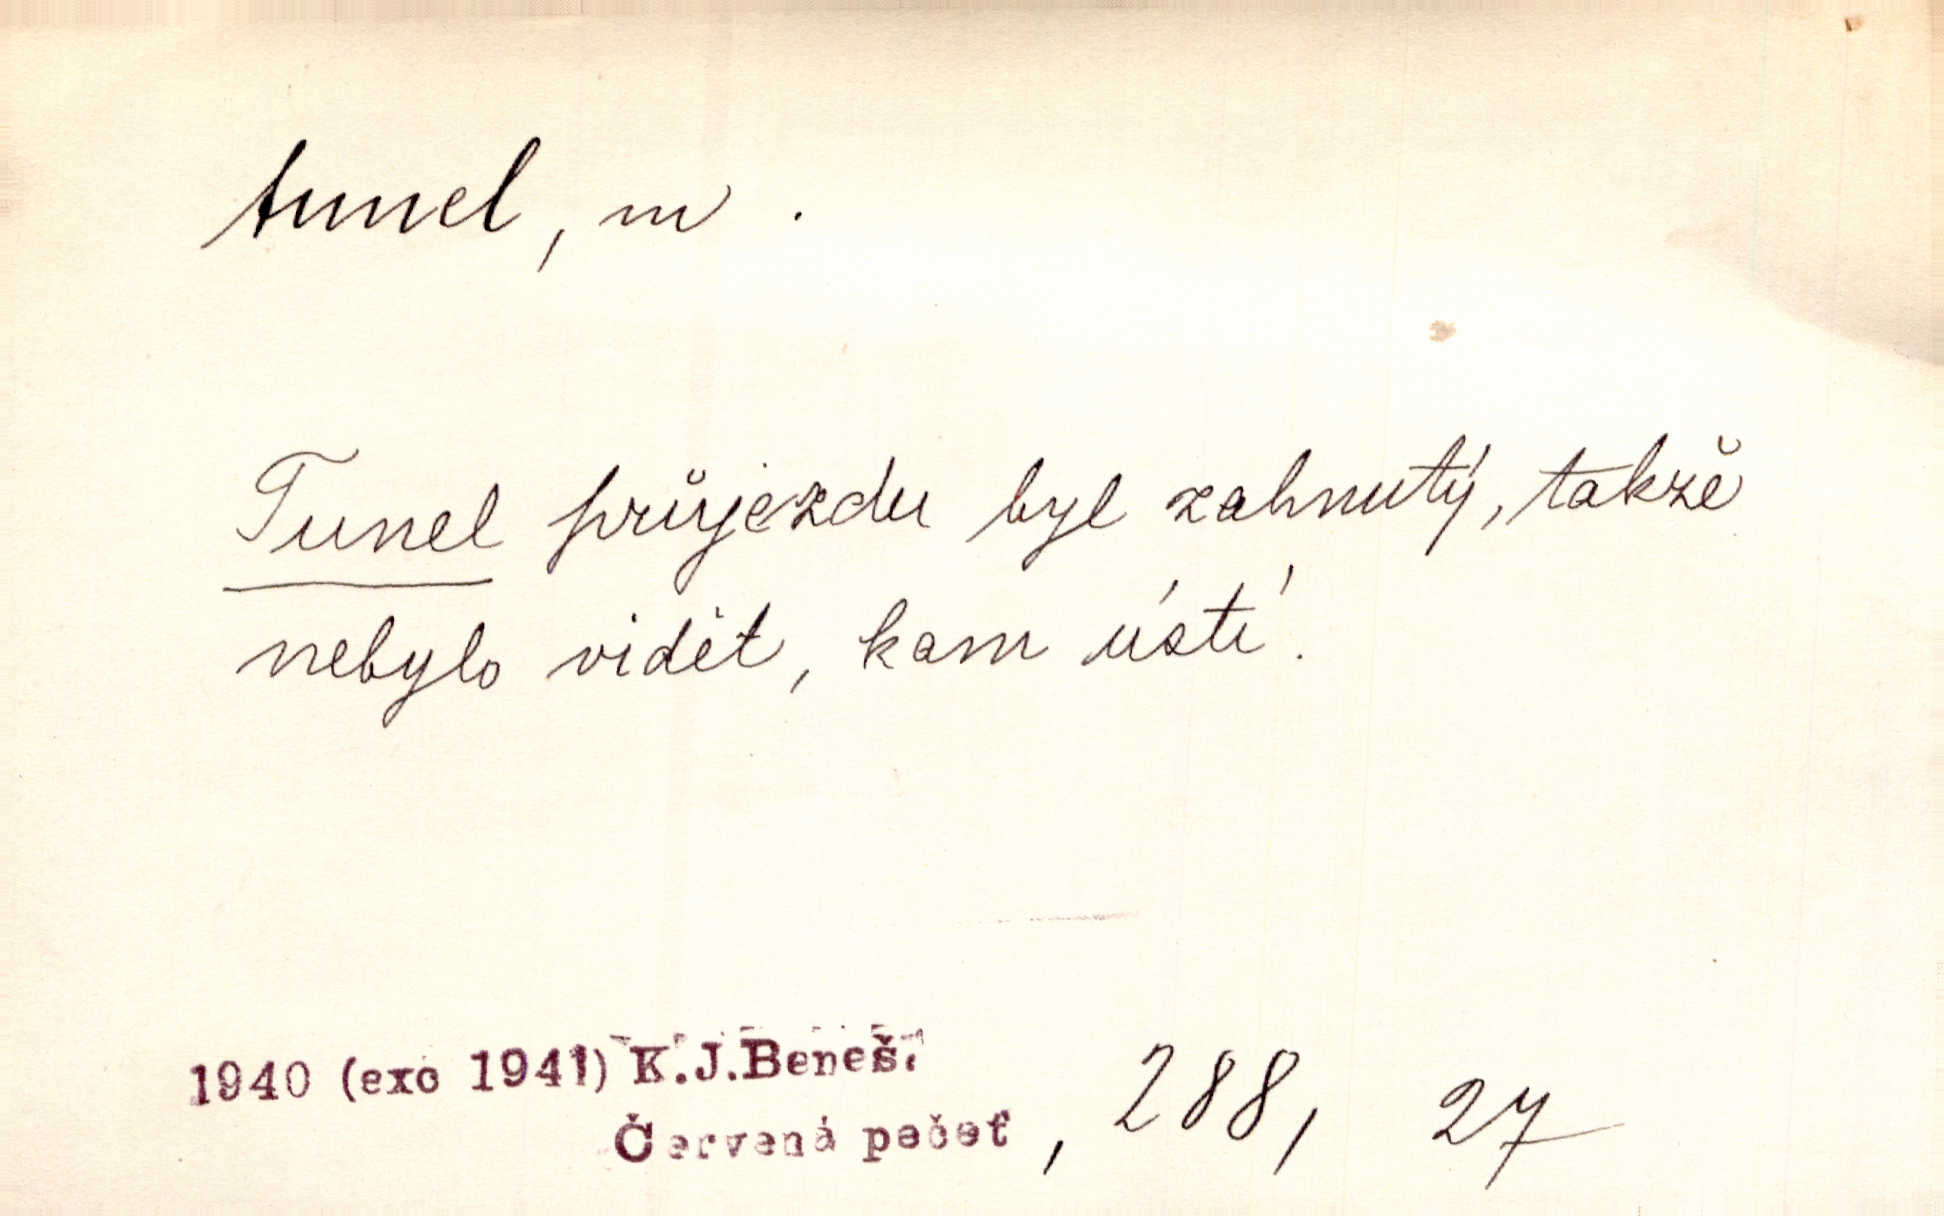 tunel, m.
Tunel průjezdu byl zahnutý, takže
nebylo vidět, kam ústí.
1940 (exo 1941) K.J.Beneš,
Červená pečeť, 288, 27